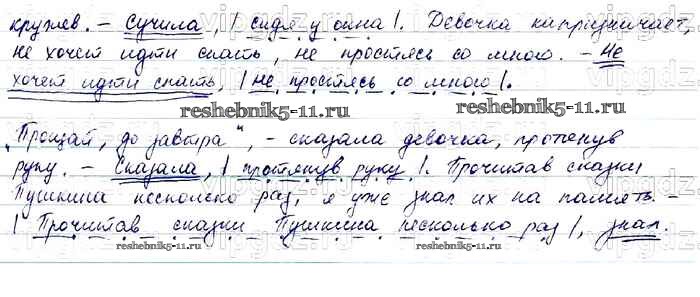 кружев. - Сучила, | сидя у окна |. Девочка капризничает,
не хочет идти спать, не простясь со мною. - Не
хочет идти спать, | не простясь со мною |.
reshebnik5-11.ru
reshebnik5-11.ru
„Прощай, до завтра", - сказала девочка, протянув
руку. - Сказала, | протянув руку |. Прочитав сказки
Пушкина несколько раз, я уже знал их на память. -
| Прочитав сказки Пушкина несколько раз |, знал.
reshebnik5-11.ru
reshebnik5-11.ru